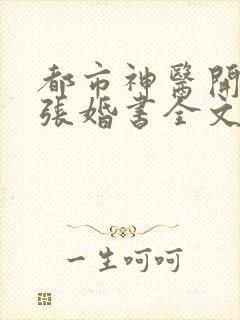 都市神醫開
張婚書全文
一生呵呵